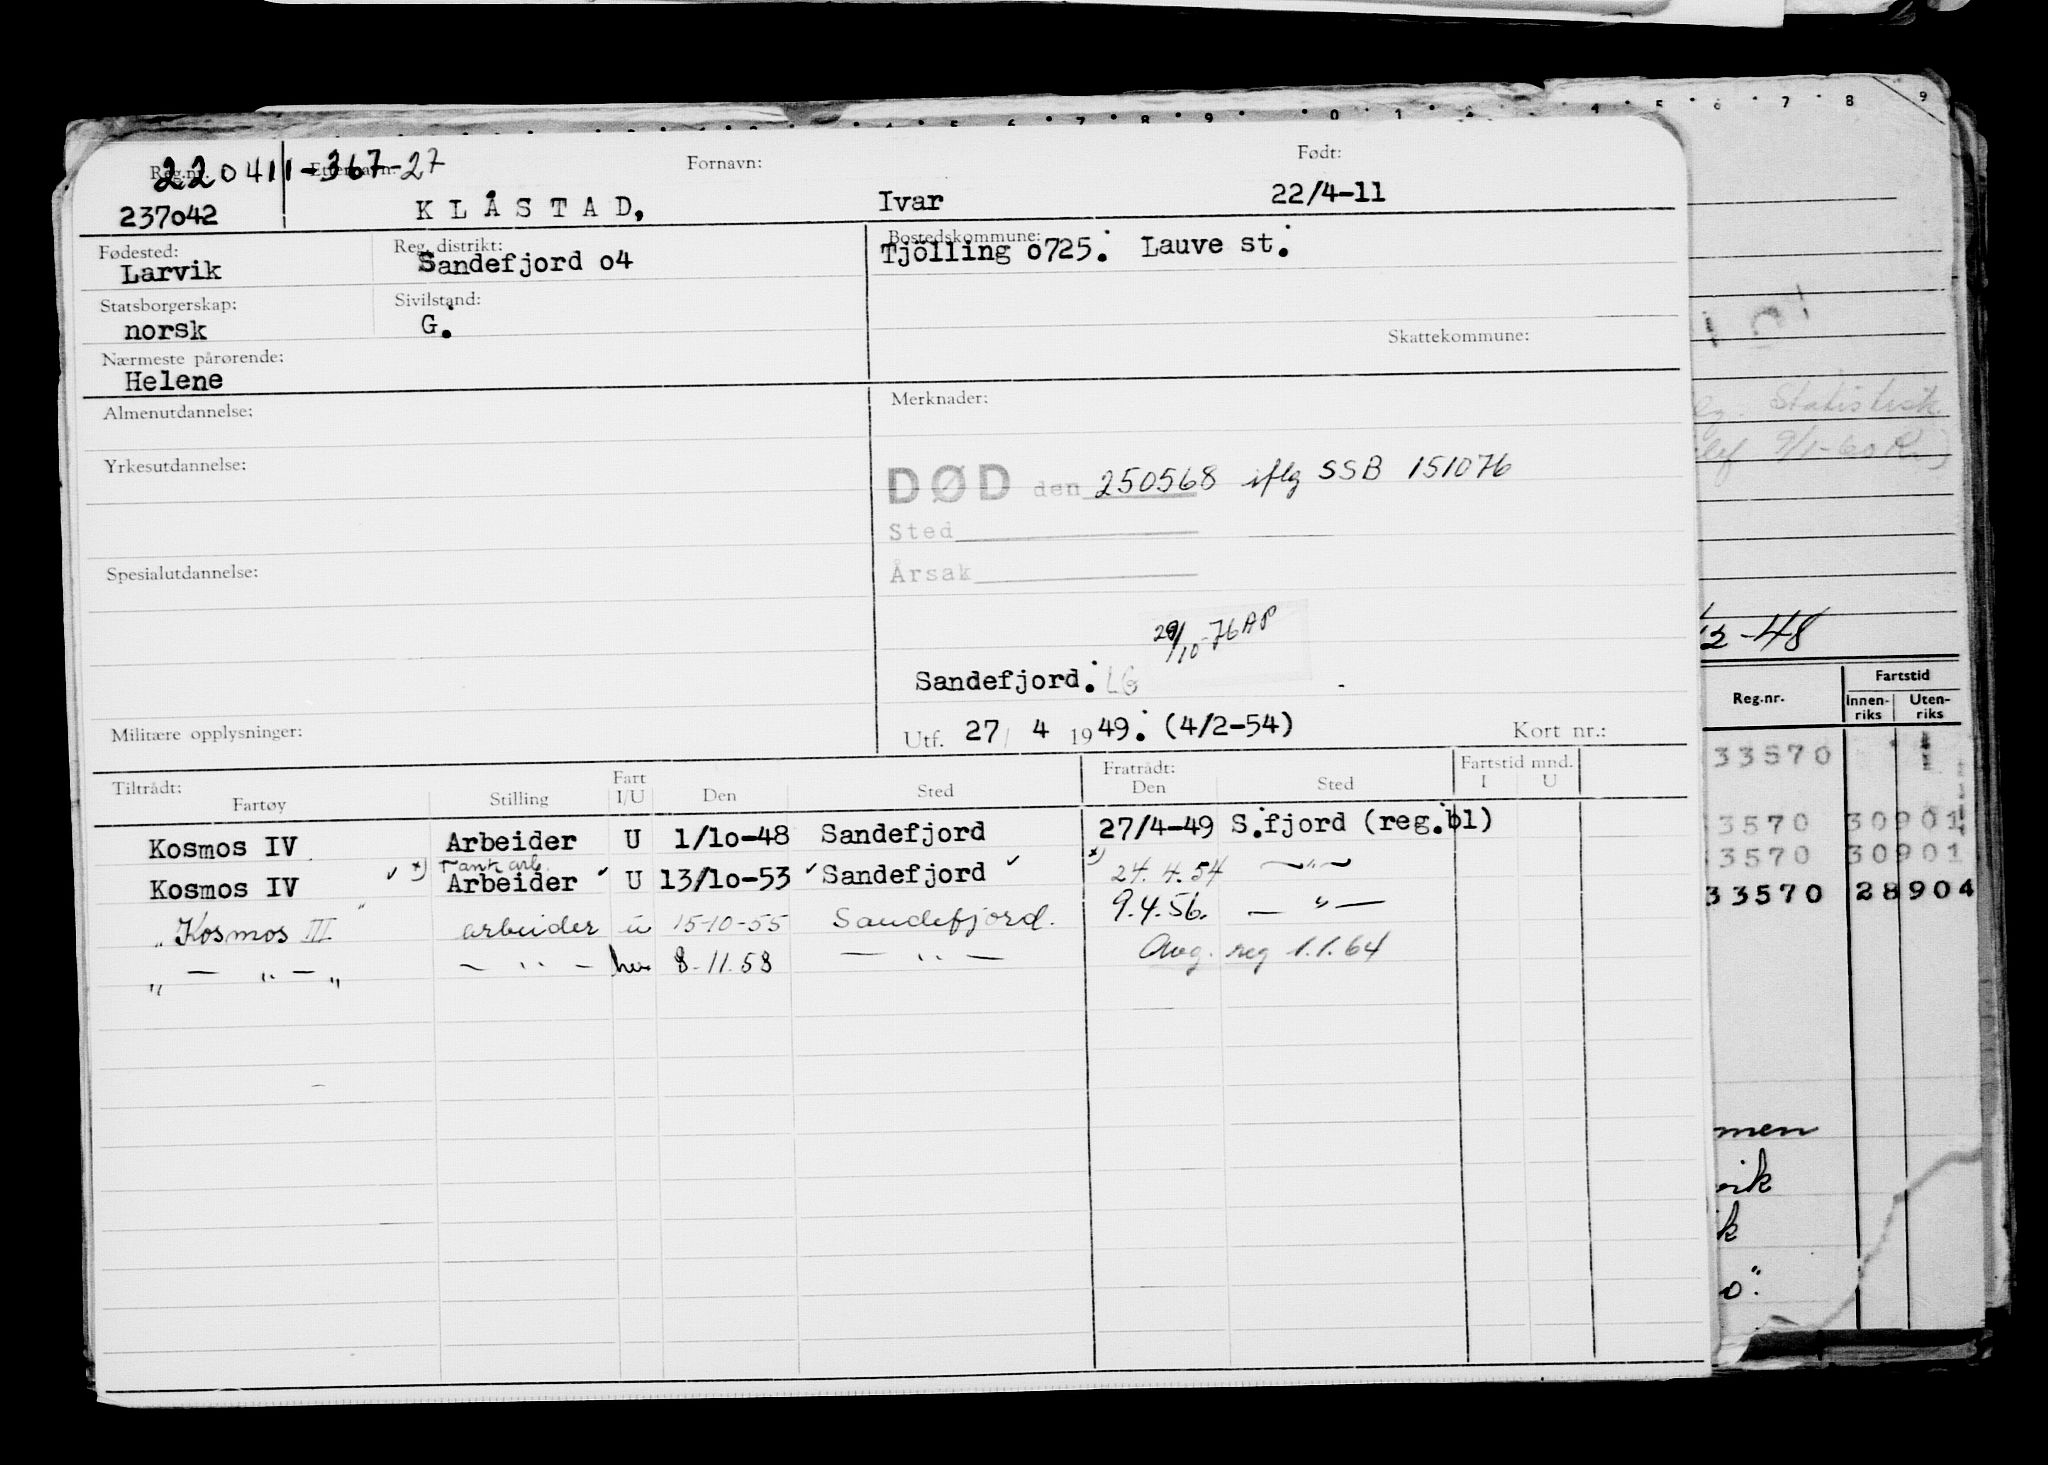 9 8 7 6 5 4 1 0 9 8 7 6 5 4
220411-367-27
Reg.nr. Etternavn: Fornavn: Født:
237042 KLÅSTAD, Ivar 22/4-11
Fødested: Reg. distrikt: Bostedskommune:
Larvik Sandefjord o4 Tjölling o725. Lauve st.
Statsborgerskap: Sivilstand:
norsk G.
Skattekommune:
Nærmeste pårørende:
Helene
Almenutdannelse: Merknader:
Yrkesutdannelse:
DØD den 250568 iflg SSB 151076
Sted
Årsak
Spesialutdannelse:
29/10-76 AP
Sandefjord. LG
Militære opplysninger: Utf. 27/ 4 1949. (4/2-54) Kort nr.:
Tiltrådt: Fratrådt: Fartstid mnd.
Fartøy Stilling Fart I/U Den Sted Den Sted I U
Kosmos IV Arbeider U 1/1o-48 Sandefjord 27/4-49 S.fjord (reg.bl)
*) Tank arb. *)
Kosmos IV ✓ Arbeider ✓ U 13/1o-53 ✓ Sandefjord ✓ 24.4.54 — " —
"Kosmos III" arbeider u 15-10-55 Sandefjord. 9.4.56. — " —
" — " — " — " — hv 8.11.58 — " — Avg. reg 1.1.64
Statistisk
9/1-60
12-48
Reg.nr. Fartstid
Innen-riks Uten-riks
33570
3570 30901
3570 30901
33570 28904
men
vik
k
o".